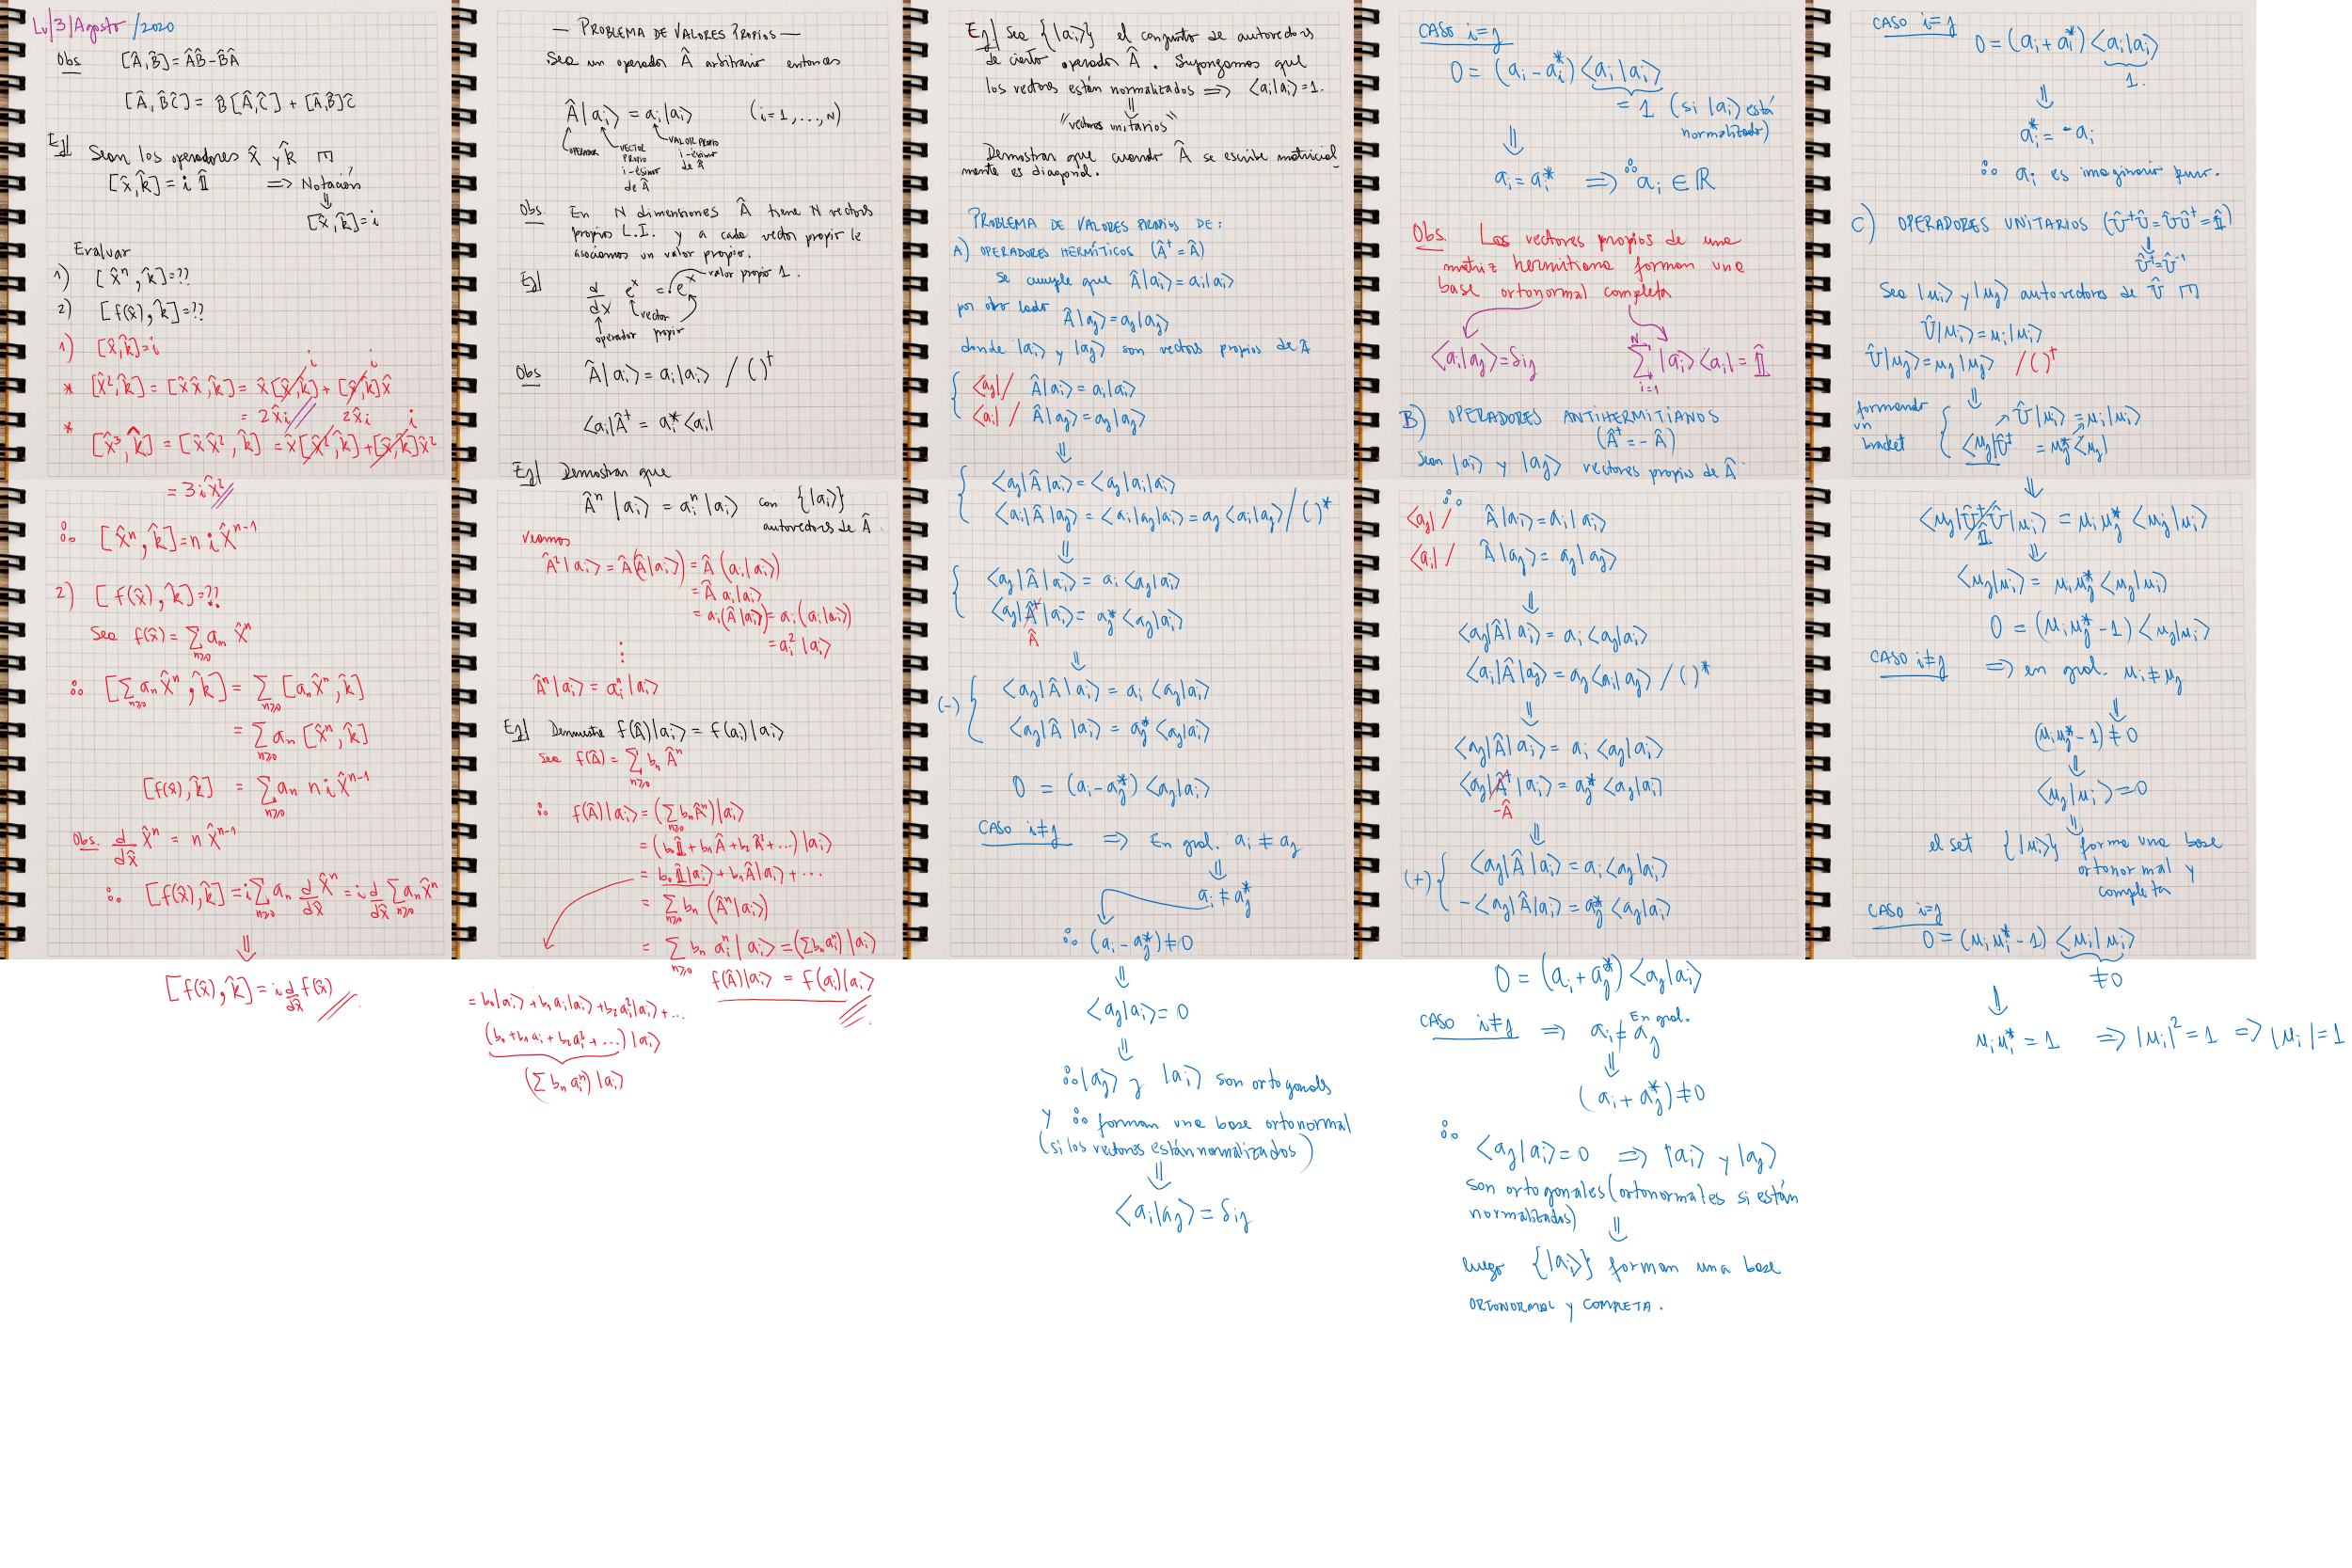 Lu/3/Agosto/2020
Obs. [Â,B̂]=ÂB̂-B̂Â
[Â,B̂Ĉ]= B̂[Â,Ĉ] + [Â,B̂]Ĉ
Ej| Sean los operadores x̂ y k̂
[x̂,k̂]=i 𝟙̂ ⇒ Notación
⇓
[x̂,k̂]=i
Evaluar
1) [x̂ⁿ,k̂]=??
2) [f(x̂),k̂]=??
1) [x̂,k̂]=i
* [x̂²,k̂] = [x̂x̂,k̂]= x̂[x̂,k̂] + [x̂,k̂]x̂
i i
= 2x̂i // 2x̂i i
* [x̂³,k̂] = [x̂x̂²,k̂] = x̂[x̂²,k̂]+[x̂,k̂]x̂²
= 3ix̂² //
∴ [x̂ⁿ,k̂]=n i x̂ⁿ⁻¹
2) [f(x̂),k̂]=??
Sea f(x̂)= ∑ₙ≥₀ aₙ x̂ⁿ
∴ [∑ₙ≥₀ aₙx̂ⁿ,k̂] = ∑ₙ≥₀ [aₙx̂ⁿ,k̂]
= ∑ₙ≥₀ aₙ [x̂ⁿ,k̂]
[f(x̂),k̂] = ∑ₙ≥₀ aₙ n i x̂ⁿ⁻¹
Obs. d/dx̂ x̂ⁿ = n x̂ⁿ⁻¹
∴ [f(x̂),k̂] = i∑ₙ≥₀ aₙ d/dx̂ x̂ⁿ = i d/dx̂ ∑ₙ≥₀ aₙx̂ⁿ
⇓
[f(x̂),k̂] = i d/dx̂ f(x̂) //
— PROBLEMA DE VALORES PROPIOS —
Sea un operador Â arbitrario entonces
Â|aᵢ〉 = aᵢ|aᵢ〉 (i=1,...,N)
OPERADOR
VECTOR PROPIO i-ésimo de Â
VALOR PROPIO i-ésimo de Â
Obs. En N dimensiones Â tiene N vectores
propios L.I. y a cada vector propio le
asociamos un valor propio.
Ej| d/dx eˣ = 1·eˣ valor propio 1.
vector propio
operador
Obs Â|aᵢ〉 = aᵢ|aᵢ〉 / ( )†
〈aᵢ|Â† = aᵢ* 〈aᵢ|
Ej| Demostrar que
Âⁿ |aᵢ〉 = aᵢⁿ |aᵢ〉 con {|aᵢ〉}
autovectores de Â.
veamos
Â²|aᵢ〉 = Â(Â|aᵢ〉) = Â (aᵢ|aᵢ〉)
= Â aᵢ|aᵢ〉
= aᵢ(Â|aᵢ〉) = aᵢ(aᵢ|aᵢ〉)
= aᵢ² |aᵢ〉
⋮
Âⁿ|aᵢ〉 = aᵢⁿ|aᵢ〉
Ej| Demuestre f(Â)|aᵢ〉 = f(aᵢ)|aᵢ〉
Sea f(Â) = ∑ₙ≥₀ bₙ Âⁿ
∴ f(Â)|aᵢ〉 = (∑ₙ≥₀ bₙÂⁿ)|aᵢ〉
= (b₀𝟙̂ + b₁Â + b₂Â² + ...)|aᵢ〉
= b₀𝟙̂|aᵢ〉 + b₁Â|aᵢ〉 + ...
= ∑ₙ≥₀ bₙ (Âⁿ|aᵢ〉)
= ∑ₙ≥₀ bₙ aᵢⁿ |aᵢ〉 = (∑bₙaᵢⁿ)|aᵢ〉
f(Â)|aᵢ〉 = f(aᵢ)|aᵢ〉
= b₀|aᵢ〉 + b₁aᵢ|aᵢ〉 + b₂aᵢ²|aᵢ〉 + ...
(b₀+b₁aᵢ+b₂aᵢ²+...)|aᵢ〉
(∑bₙaᵢⁿ)|aᵢ〉
Ej| Sea {|aᵢ〉} el conjunto de autovectores
de cierto operador Â. Supongamos que
los vectores están normalizados ⇒ 〈aᵢ|aᵢ〉=1.
⇓
"vectores unitarios"
Demostrar que cuando Â se escribe matricial-
mente es diagonal.
PROBLEMA DE VALORES PROPIOS DE:
A) OPERADORES HERMÍTICOS (Â†=Â)
se cumple que Â|aᵢ〉=aᵢ|aᵢ〉
por otro lado Â|aⱼ〉=aⱼ|aⱼ〉
donde |aᵢ〉 y |aⱼ〉 son vectores propios de Â
〈aⱼ| / Â|aᵢ〉=aᵢ|aᵢ〉
〈aᵢ| / Â|aⱼ〉=aⱼ|aⱼ〉
⇓
〈aⱼ|Â|aᵢ〉=〈aⱼ|aᵢ|aᵢ〉
〈aᵢ|Â|aⱼ〉=〈aᵢ|aⱼ|aⱼ〉=aⱼ〈aᵢ|aⱼ〉 / ( )*
⇓
〈aⱼ|Â|aᵢ〉= aᵢ〈aⱼ|aᵢ〉
〈aⱼ|Â†|aᵢ〉= aⱼ*〈aⱼ|aᵢ〉
Â
⇓
(-) 〈aⱼ|Â|aᵢ〉 = aᵢ〈aⱼ|aᵢ〉
〈aⱼ|Â|aᵢ〉 = aⱼ*〈aⱼ|aᵢ〉
0 = (aᵢ-aⱼ*)〈aⱼ|aᵢ〉
CASO i≠j ⇒ En gral. aᵢ≠aⱼ
⇓
aᵢ≠aⱼ*
∴ (aᵢ-aⱼ*)≠0
⇓
〈aⱼ|aᵢ〉=0
⇓
∴|aⱼ〉 y |aᵢ〉 son ortogonales
y ∴ forman una base ortonormal
(si los vectores están normalizados)
⇓
〈aᵢ|aⱼ〉=δᵢⱼ
CASO i=j
0 = (aᵢ-aᵢ*)〈aᵢ|aᵢ〉
= 1 (si |aᵢ〉 está
normalizado)
⇓
aᵢ=aᵢ* ⇒ ∴ aᵢ∈ℝ
Obs. Los vectores propios de una
matriz hermitiana forman una
base ortonormal completa
〈aᵢ|aⱼ〉=δᵢⱼ ∑ᵢ₌₁ᴺ |aᵢ〉〈aᵢ| = 𝟙̂
B) OPERADORES ANTIHERMITIANOS
(Â†=-Â)
Sean |aᵢ〉 y |aⱼ〉 vectores propios de Â
∴
〈aⱼ| / Â|aᵢ〉=aᵢ|aᵢ〉
〈aᵢ| / Â|aⱼ〉=aⱼ|aⱼ〉
⇓
〈aⱼ|Â|aᵢ〉= aᵢ〈aⱼ|aᵢ〉
〈aᵢ|Â|aⱼ〉= aⱼ〈aᵢ|aⱼ〉 / ( )*
⇓
〈aⱼ|Â|aᵢ〉= aᵢ〈aⱼ|aᵢ〉
〈aⱼ|Â†|aᵢ〉= aⱼ*〈aⱼ|aᵢ〉
-Â
⇓
(+) 〈aⱼ|Â|aᵢ〉=aᵢ〈aⱼ|aᵢ〉
-〈aⱼ|Â|aᵢ〉=aⱼ*〈aⱼ|aᵢ〉
0 = (aᵢ+aⱼ*)〈aⱼ|aᵢ〉
CASO i≠j ⇒ aᵢ≠aⱼ En gral.
⇓
(aᵢ+aⱼ*)≠0
∴ 〈aⱼ|aᵢ〉=0 ⇒ |aᵢ〉 y |aⱼ〉
son ortogonales (ortonormales si están
normalizados)
⇓
luego {|aᵢ〉} forman una base
ORTONORMAL y COMPLETA.
CASO i=j
0=(aᵢ+aᵢ*)〈aᵢ|aᵢ〉
1.
⇓
aᵢ*=-aᵢ
∴ aᵢ es imaginario puro.
C) OPERADORES UNITARIOS (Û†Û=ÛÛ†=𝟙̂)
⇓
Û†=Û⁻¹
Sea |μᵢ〉 y |μⱼ〉 autovectores de Û
Û|μᵢ〉=μᵢ|μᵢ〉
Û|μⱼ〉=μⱼ|μⱼ〉 / ( )†
⇓
formando un bracket
Û|μᵢ〉=μᵢ|μᵢ〉
〈μⱼ|Û† = μⱼ*〈μⱼ|
⇓
〈μⱼ|Û†Û|μᵢ〉 = μᵢμⱼ*〈μⱼ|μᵢ〉
𝟙̂
⇓
〈μⱼ|μᵢ〉= μᵢμⱼ*〈μⱼ|μᵢ〉
0 = (μᵢμⱼ*-1)〈μⱼ|μᵢ〉
CASO i≠j ⇒ en gral. μᵢ≠μⱼ
⇓
(μᵢμⱼ*-1)≠0
⇓
〈μⱼ|μᵢ〉=0
⇓
el set {|μᵢ〉} forma una base
ortonormal y
completa
CASO i=j
0=(μᵢμᵢ*-1)〈μᵢ|μᵢ〉
≠0
⇓
μᵢμᵢ*=1 ⇒ |μᵢ|²=1 ⇒ |μᵢ|=1